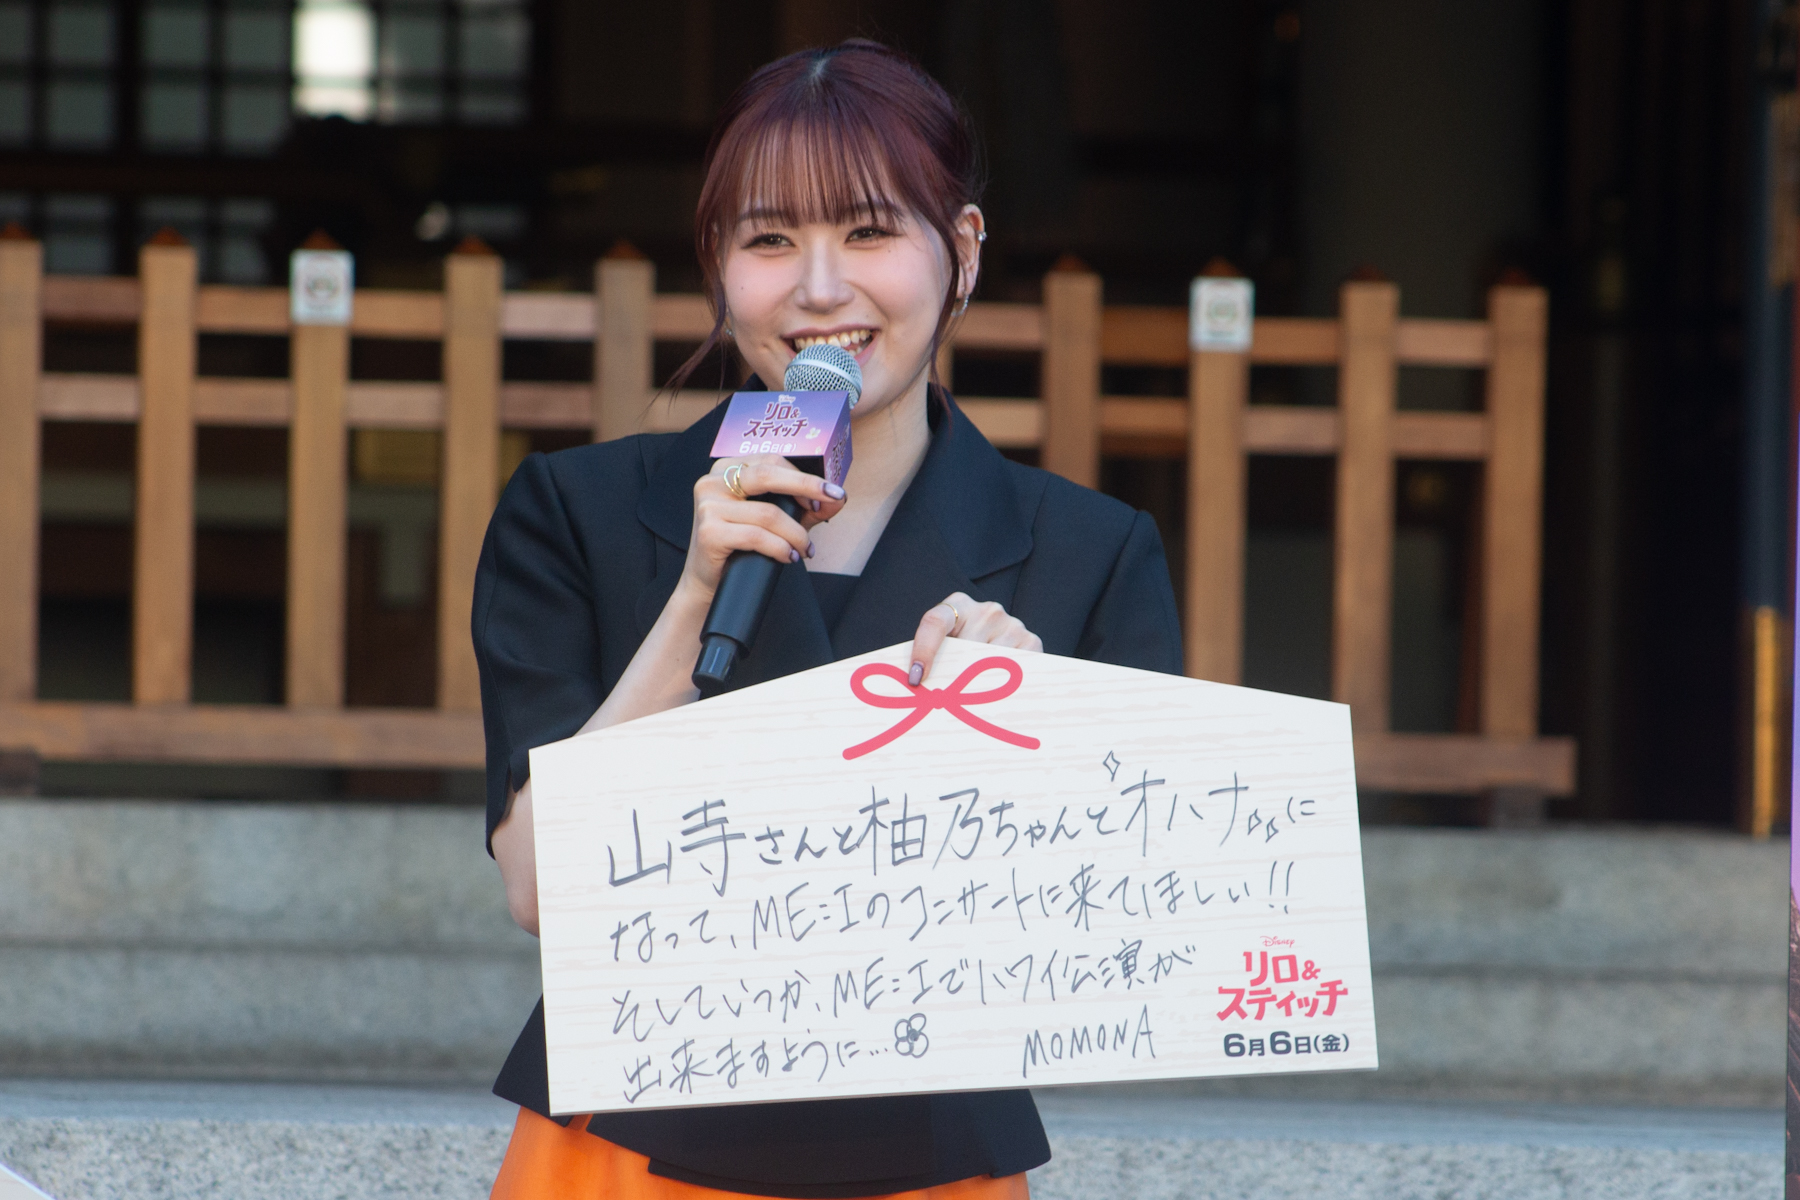 Disney
リロ&
スティッチ
6月6日(金)
山寺さんと柚乃ちゃんとオハナに
なって、ME:Iのコンサートに来てほしい!!
そしていつか、ME:Iでハワイ公演が
出来ますように…
MOMONA
Disney
リロ&
スティッチ
6月6日(金)